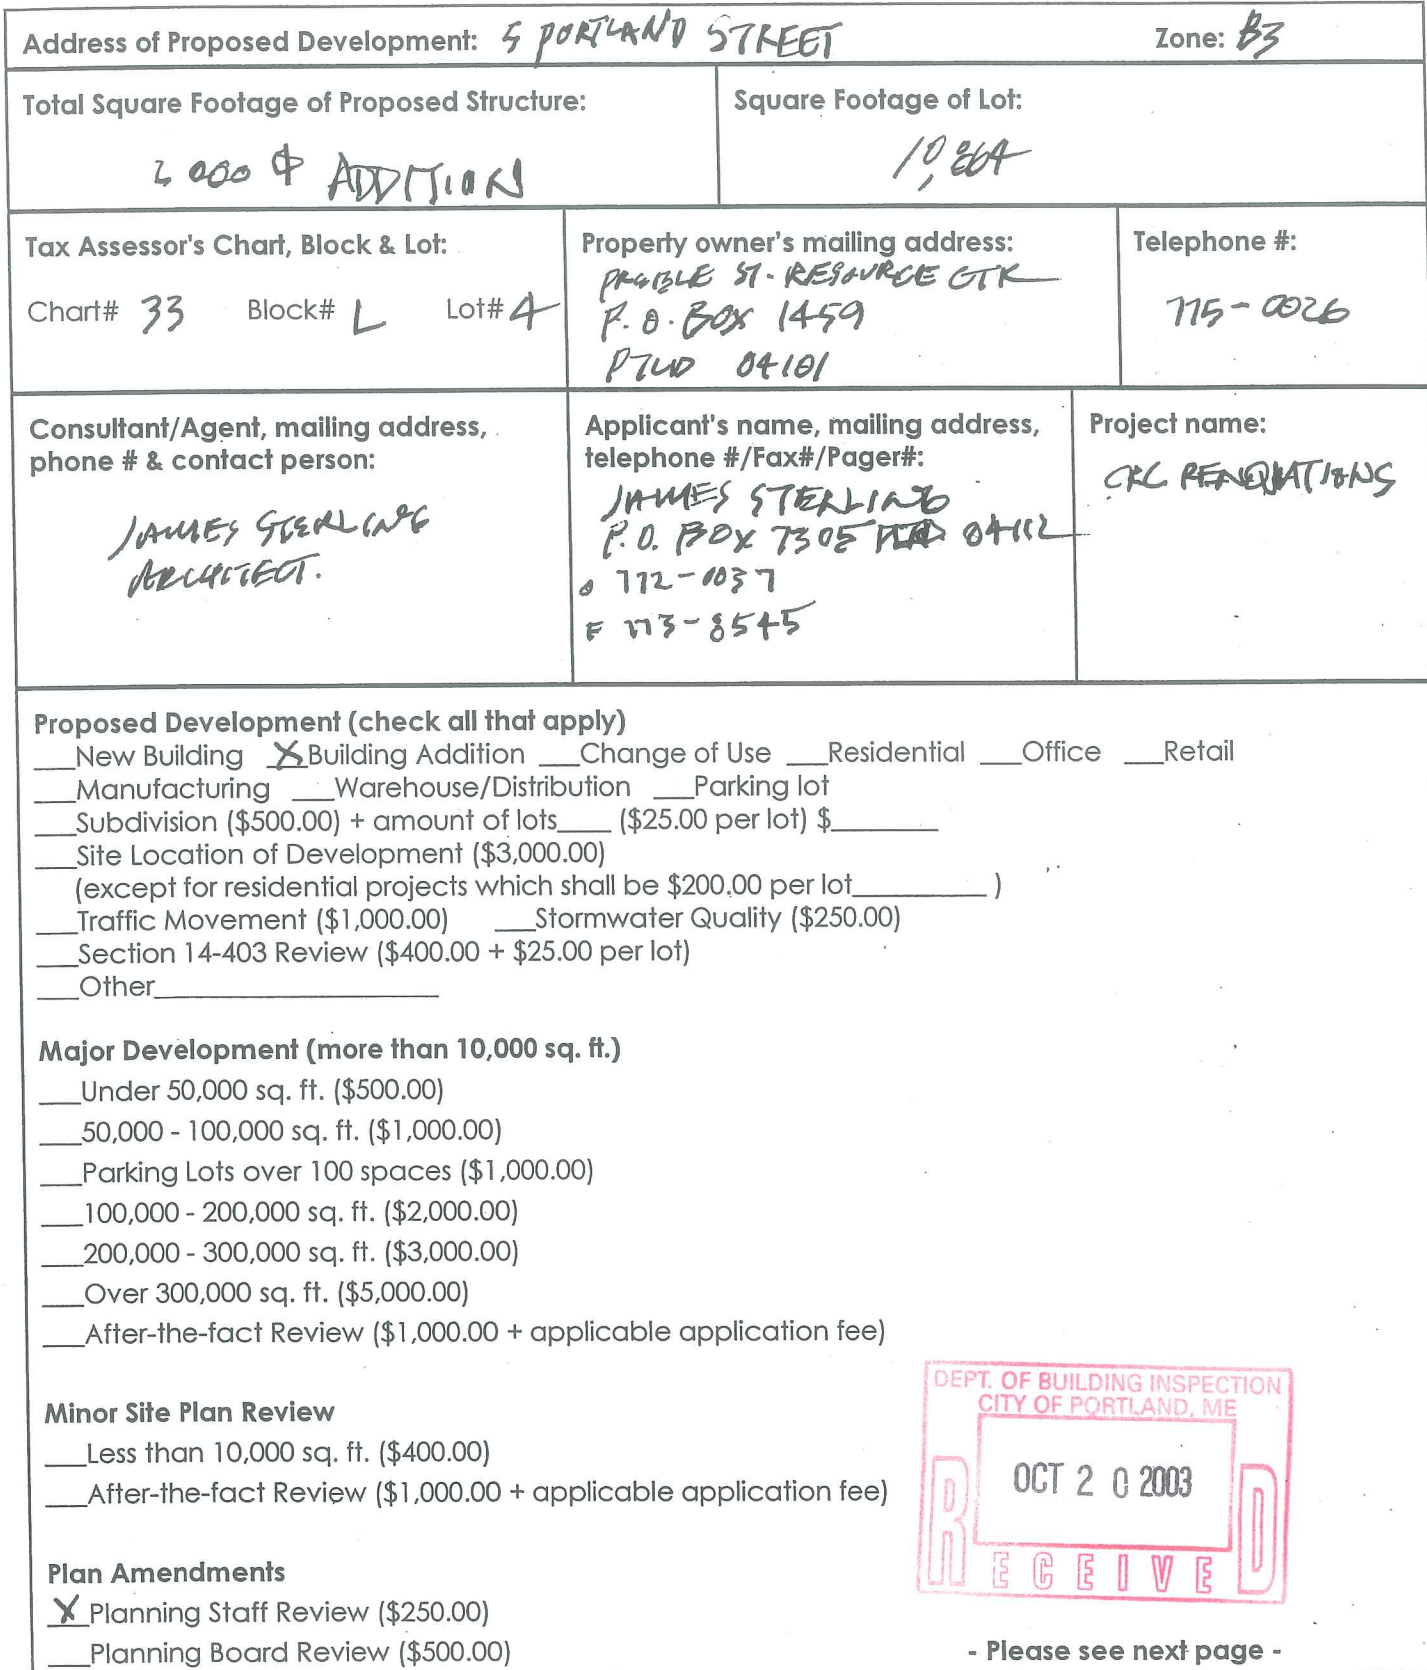 Address of Proposed Development: 5 PORTLAND STREET Zone: B3
Total Square Footage of Proposed Structure: Square Footage of Lot:
000 ⌽ ADDITION 10,864
Tax Assessor's Chart, Block & Lot: Property owner's mailing address: Telephone #:
Chart# 33 Block# L Lot# 4
PREBLE ST. RESOURCE CTR
P.O. BOX 1459
PTLD 04101
775-0026
Consultant/Agent, mailing address,
phone # & contact person:
JAMES STERLING
ARCHITECT.
Applicant's name, mailing address,
telephone #/Fax#/Pager#:
JAMES STERLING
P.O. BOX 7305 04112
O 772-0037
F 773-8545
Project name:
CRC RENOVATIONS
Proposed Development (check all that apply)
___New Building _X_Building Addition ___Change of Use ___Residential ___Office ___Retail
___Manufacturing ___Warehouse/Distribution ___Parking lot
___Subdivision ($500.00) + amount of lots____ ($25.00 per lot) $________
___Site Location of Development ($3,000.00)
(except for residential projects which shall be $200.00 per lot__________ )
___Traffic Movement ($1,000.00) ___Stormwater Quality ($250.00)
___Section 14-403 Review ($400.00 + $25.00 per lot)
___Other____________________
Major Development (more than 10,000 sq. ft.)
___Under 50,000 sq. ft. ($500.00)
___50,000 - 100,000 sq. ft. ($1,000.00)
___Parking Lots over 100 spaces ($1,000.00)
___100,000 - 200,000 sq. ft. ($2,000.00)
___200,000 - 300,000 sq. ft. ($3,000.00)
___Over 300,000 sq. ft. ($5,000.00)
___After-the-fact Review ($1,000.00 + applicable application fee)
Minor Site Plan Review
___Less than 10,000 sq. ft. ($400.00)
___After-the-fact Review ($1,000.00 + applicable application fee)
DEPT. OF BUILDING INSPECTION
CITY OF PORTLAND, ME
OCT 20 2003
RECEIVED
Plan Amendments
_X_Planning Staff Review ($250.00)
___Planning Board Review ($500.00)
- Please see next page -